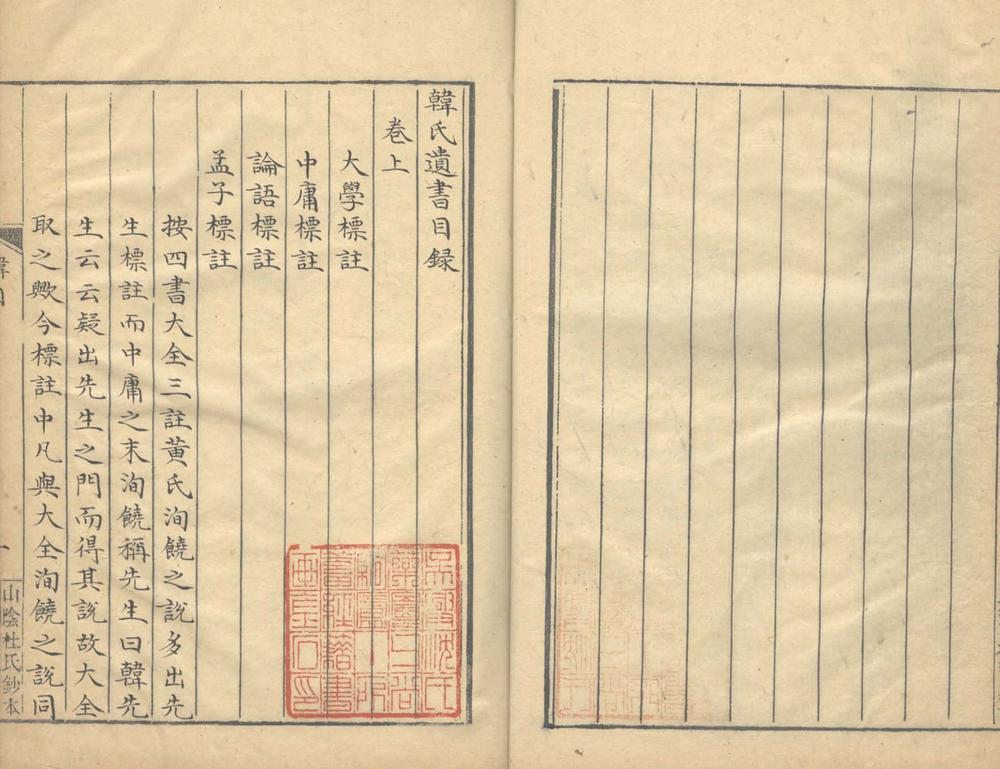 韓氏遺書目録
卷上
大學標註
中庸標註
論語標註
孟子標註
按四書大全三註黃氏洵饒之說多出先
生標註而中庸之末洵饒稱先生曰韓先
生云云疑出先生之門而得其說故大全
取之歟今標註中凡與大全洵饒之說同
山陰杜氏鈔本